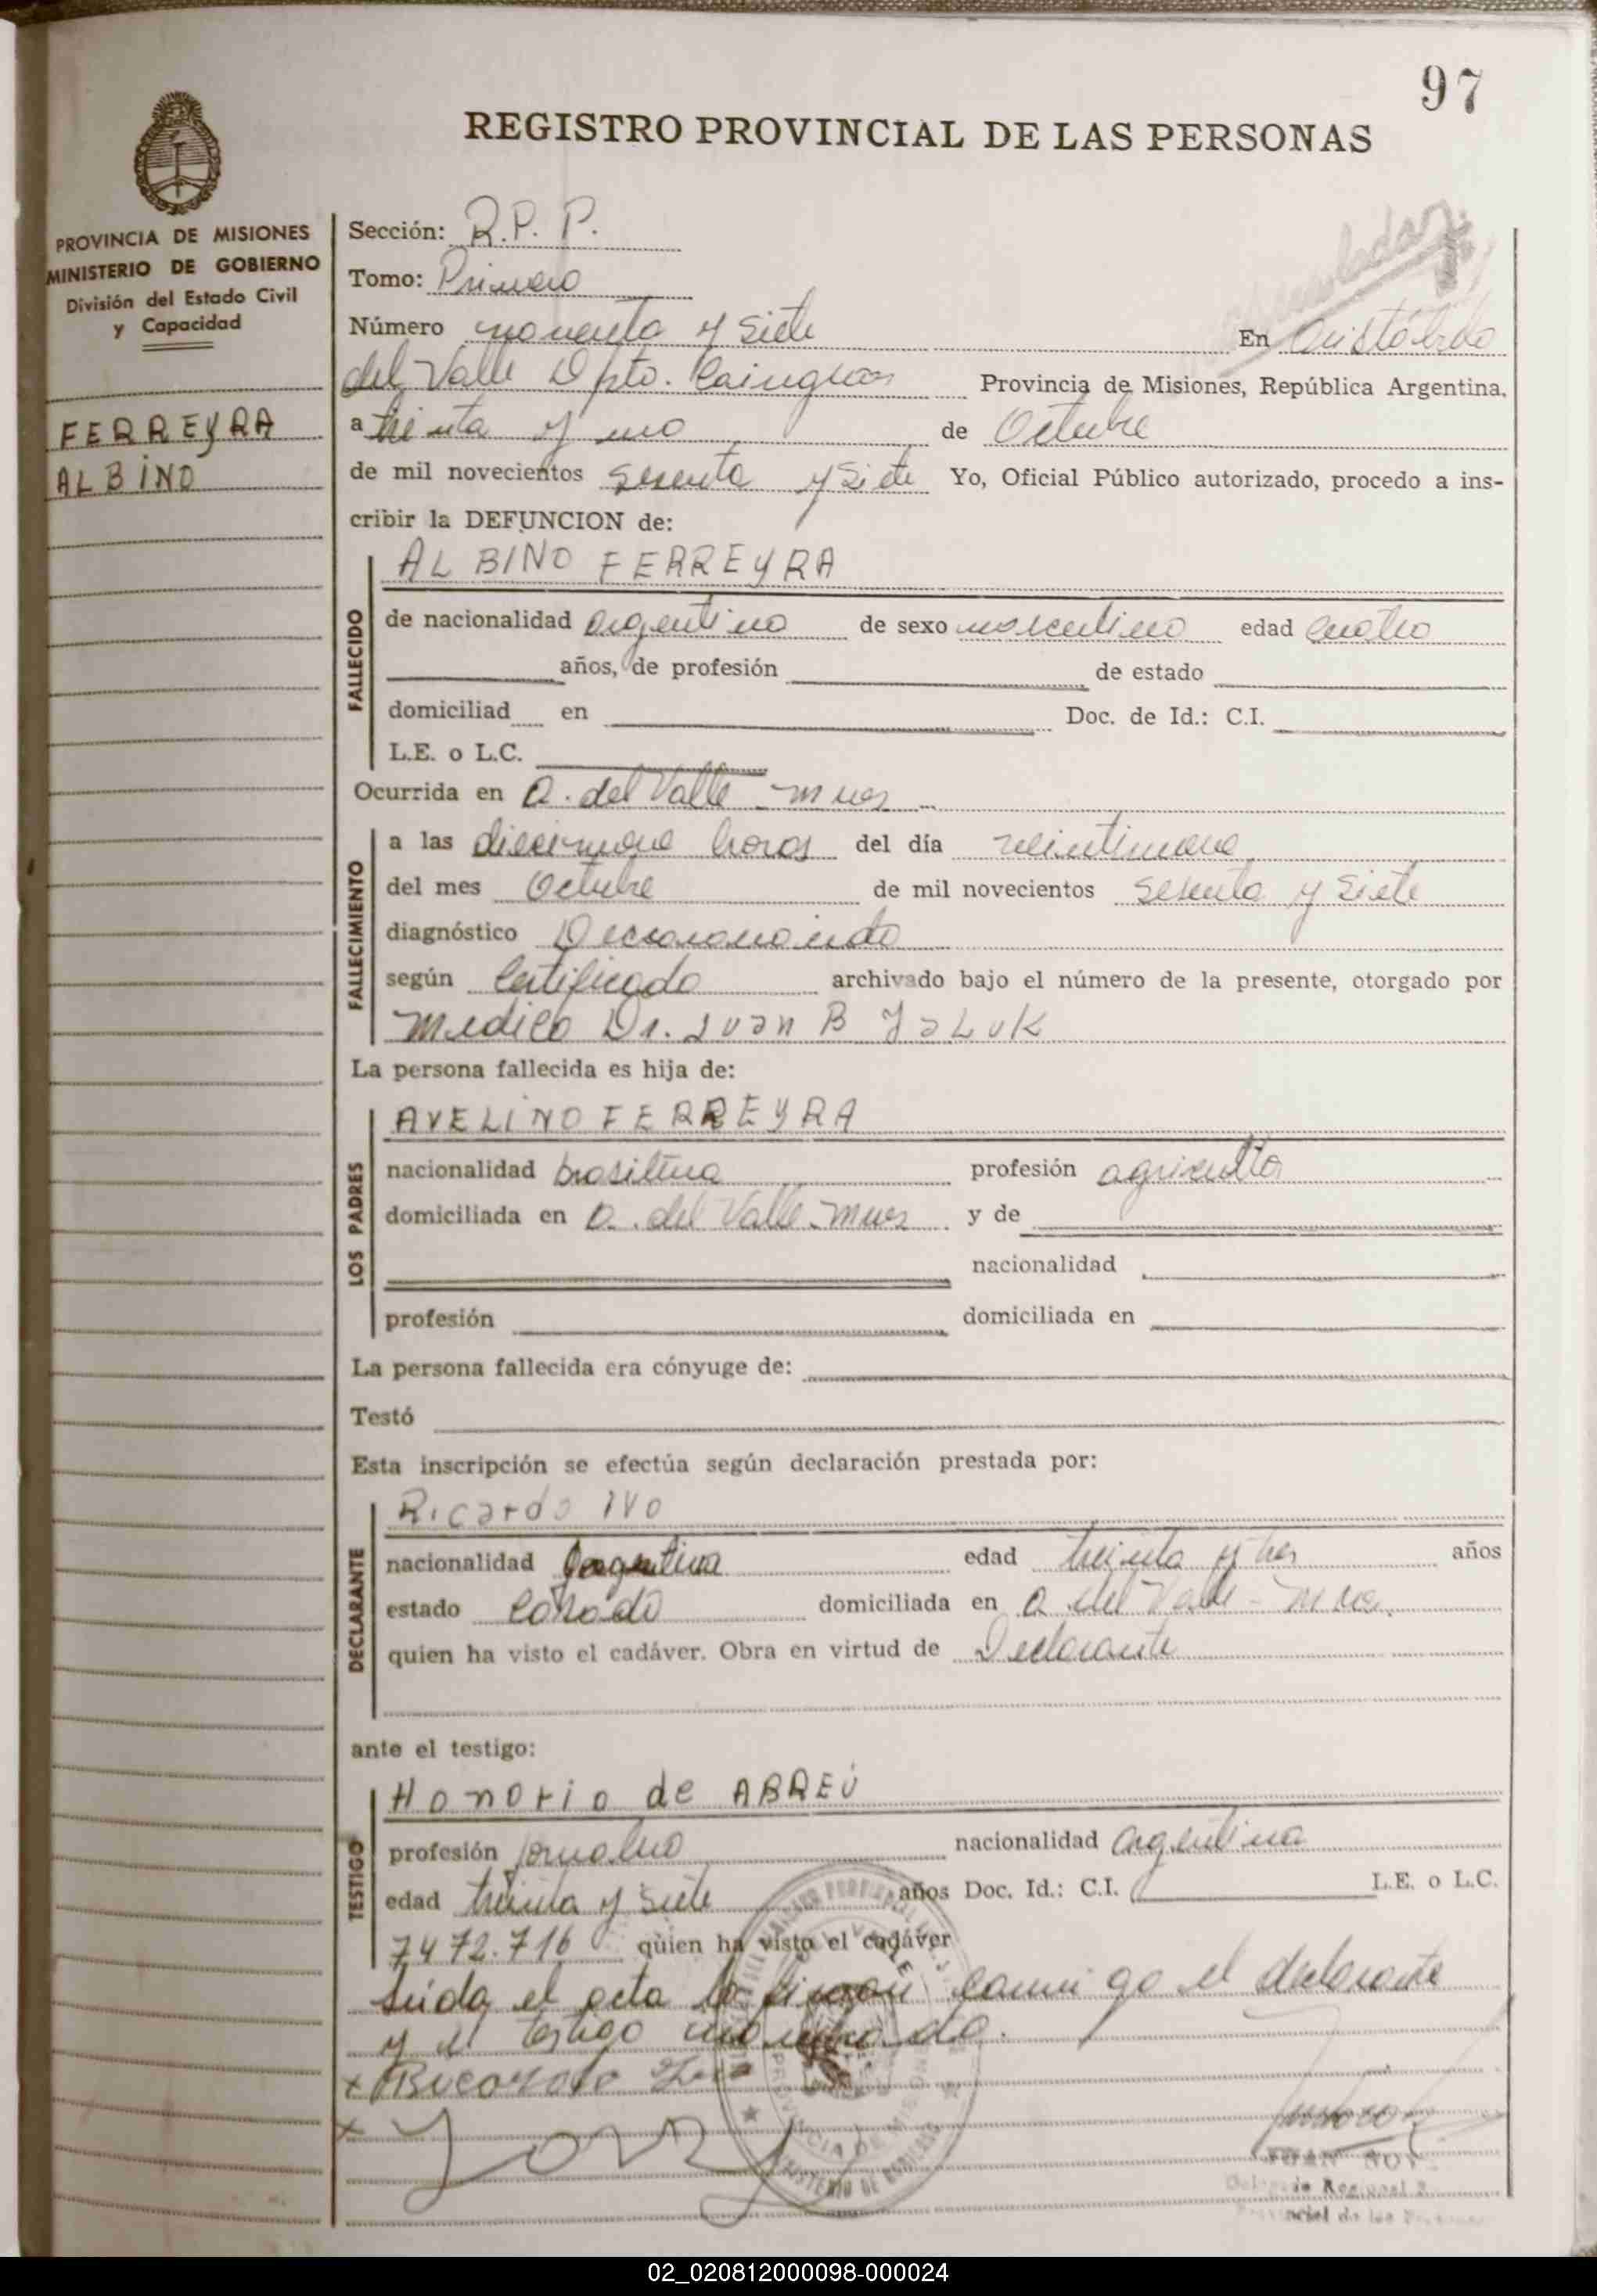 97
REGISTRO PROVINCIAL DE LAS PERSONAS
PROVINCIA DE MISIONES
MINISTERIO DE GOBIERNO
División del Estado Civil
y Capacidad
FERREYRA
ALBINO
Sección: R.P.P.
Tomo: Primero
Número noventa y siete En Aristóbulo
del Valle Dpto. Cainguas Provincia de Misiones, República Argentina,
a treinta y uno de Octubre
de mil novecientos sesenta y siete Yo, Oficial Público autorizado, procedo a ins-
cribir la DEFUNCION de:
FALLECIDO
ALBINO FERREYRA
de nacionalidad argentino de sexo masculino edad cuatro
años, de profesión de estado
domiciliad en Doc. de Id.: C.I.
L.E. o L.C.
Ocurrida en A. del Valle - Mnes
FALLECIMIENTO
a las diecinueve horas del día veintinueve
del mes Octubre de mil novecientos sesenta y siete
diagnóstico
según Certificado archivado bajo el número de la presente, otorgado por
Medico Dr. Juan B
La persona fallecida es hija de:
LOS PADRES
AVELINO FERREYRA
nacionalidad brasilera profesión agricultor
domiciliada en A. del Valle - Mnes y de
nacionalidad
profesión domiciliada en
La persona fallecida era cónyuge de:
Testó
Esta inscripción se efectúa según declaración prestada por:
DECLARANTE
Ricardo Ivo
nacionalidad argentina edad treinta y tres años
estado casado domiciliada en A. del Valle - Mnes.
quien ha visto el cadáver. Obra en virtud de Declarante
ante el testigo:
TESTIGO
Honorio de ABREU
profesión Jornalero nacionalidad argentina
edad treinta y siete años Doc. Id.: C.I. L.E. o L.C.
7472.716 quien ha visto el cadáver
Leida el acta la firman conmigo el declarante
y el testigo nombrado.
02_020812000098-000024